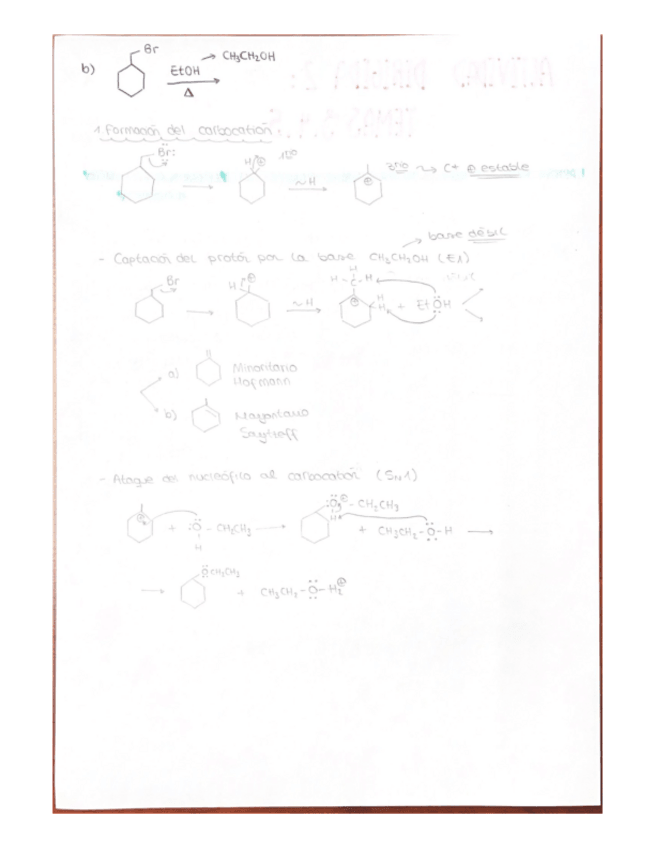 b)
Br
EtOH → CH₃CH₂OH
Δ
1. Formación del carbocatión.
Br:
H
⊕
1º
~H
⊕
3rio → C+ ⊕ estable
- Captación del protón por la base CH₃CH₂OH (E1) → base débil
Br
H
⊕
~H
H
H - C - H
⊕
H
H
+ EtÖH
a) Minoritario
Hofmann
b) Mayoritario
Saytzeff
- Ataque del nucleófilo al carbocatión (SN1)
⊕ + :Ö - CH₂CH₃
H
:O⊕ - CH₂CH₃
H
+ CH₃CH₂ - Ö - H
ÖCH₂CH₃
+ CH₃CH₂ - Ö - H₂⊕